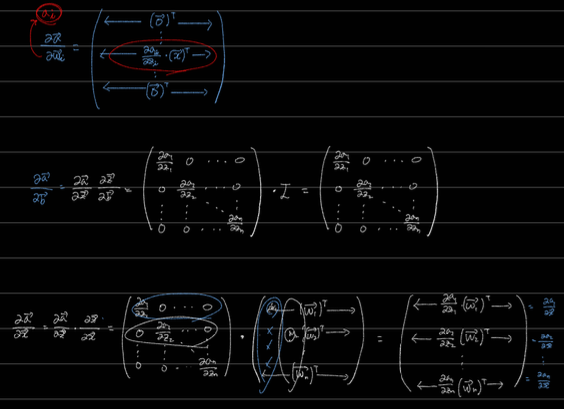 aᵢ
∂a⃗/∂w⃗ᵢ = ( ← (0⃗)ᵀ →
⋮
← ∂aᵢ/∂zᵢ · (x⃗)ᵀ →
⋮
← (0⃗)ᵀ → )
∂a⃗/∂b⃗ = ∂a⃗/∂z⃗ ∂z⃗/∂b⃗ = ( ∂a₁/∂z₁ 0 ⋯ 0 ; 0 ∂a₂/∂z₂ ⋯ 0 ; ⋮ ⋮ ⋱ ; 0 0 ⋯ ∂aₙ/∂zₙ ) · I = ( ∂a₁/∂z₁ 0 ⋯ 0 ; 0 ∂a₂/∂z₂ ⋯ 0 ; ⋮ ⋮ ⋱ ; 0 0 ⋯ ∂aₙ/∂zₙ )
∂a⃗/∂x⃗ = ∂a⃗/∂z⃗ · ∂z⃗/∂x⃗ = ( ∂a₁/∂z₁ 0 ⋯ 0 ; 0 ∂a₂/∂z₂ ⋯ 0 ; ⋮ ⋮ ⋱ ; 0 0 ⋯ ∂aₙ/∂zₙ ) · ( ← (w⃗₁)ᵀ → ; (w⃗₂)ᵀ → ; ← (w⃗ₙ)ᵀ → ) = ( ← ∂a₁/∂z₁ (w⃗₁)ᵀ → ; ← ∂a₂/∂z₂ (w⃗₂)ᵀ → ; ⋮ ; ← ∂aₙ/∂zₙ (w⃗ₙ)ᵀ → ) = ∂a₁/∂x⃗ ; = ∂a₂/∂x⃗ ; ⋮ ; = ∂aₙ/∂x⃗